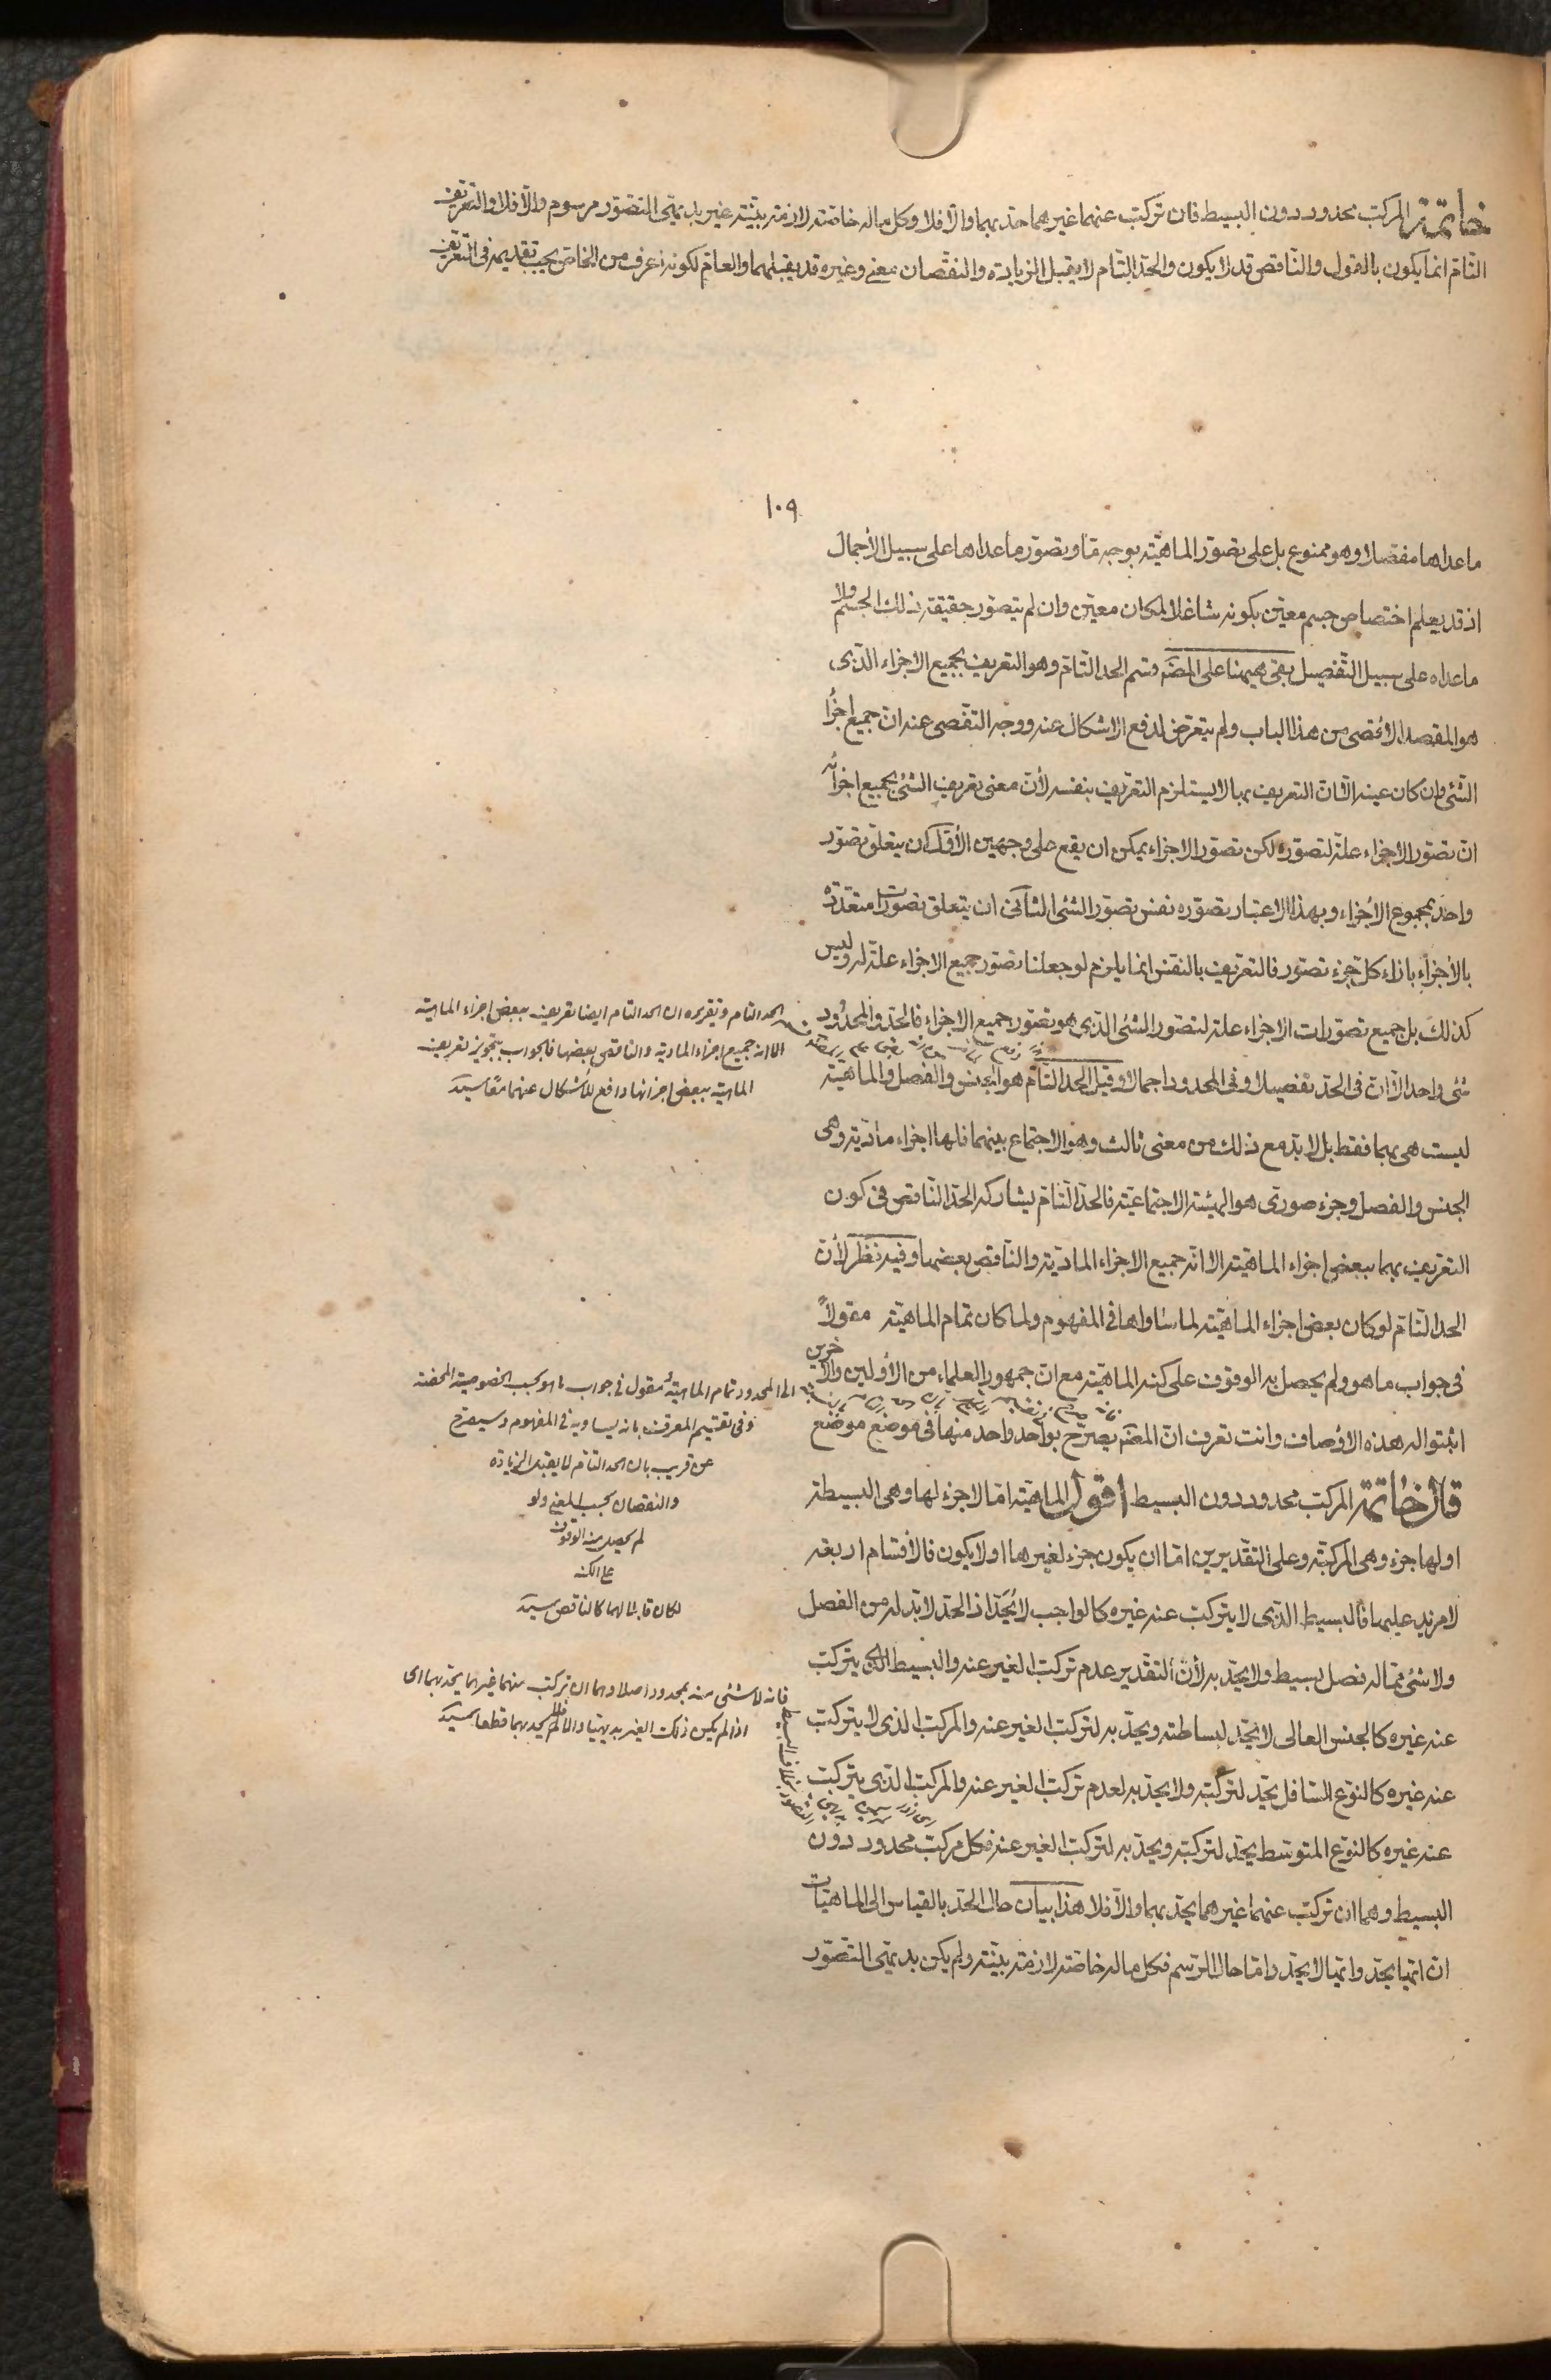 خاتمة المركب محدود دون البسيط فان تركب عنهما غيرهما حد بهما والا فلا وكل ماله خاصة لازمة بينة غير بديهى التصور مرسوم والا فلا والتعريف
التام انما يكون بالقول والناقص قد لا يكون والحد التام لا يقبل الزيادة والنقصان معنى وغيره قد يقبلهما والعام لكونه اعرف من الخاص يجب تقديمه فى التعريف
١٠٩
ما عداها مفصلا وهو ممنوع بل على تصور الماهية بوجه ما وتصور ما عداها على سبيل الاجمال
اذ قد يعلم اختصاص جسم معين بكونه شاغلا لمكان معين وان لم يتصور حقيقة ذلك الجسم ولا
ما عداه على سبيل التفصيل بقى هيهنا على المصنم قسم الحد التام وهو التعريف بجميع الاجزاء الذى
هو المقصد الاقصى من هذا الباب ولم يتعرض لدفع الاشكال عنه ووجه التفصى عنه ان جميع اجزأ
الشئ وان كان عينه الا ان التعريف بها لا يستلزم التعريف بنفسه لأن معنى تعريف الشئ بجميع اجزائه
ان تصور الاجزاء علة لتصوره لكن تصور الاجزاء يمكن ان يقع على وجهين الأول ان يتعلق تصور
واحد بمجموع الأجزاء وبهذا الاعتبار تصوره نفس تصور الشئ الثانى ان يتعلق تصورات متعددة
بالأجزاء بازاء كل جزء تصور فالتعريف بالنفس انما يلزم لو جعلنا تصور جميع الاجزاء علة له وليس
كذلك بل جميع تصورات الاجزاء علة لتصور الشئ الذى هو تصور جميع الاجزاء فالحد والمحدود
شئ واحد الا ان فى الحد تفصيلا وفى المحدود اجمالا وقيل الحد التام هو الجنس والفصل والماهية
ليست هى بهما فقط بل لا بد مع ذلك من معنى ثالث وهو الاجتماع بينهما فلها اجزاء مادية وهى
الجنس والفصل وجزء صورى هو الهيئة الاجتماعية فالحد التام يشاركه الحد الناقص فى كون
التعريف بهما ببعض اجزاء الماهية الا انه جميع الاجزاء المادية والناقص بعضها وفيه نظر لأن
الحد التام لو كان بعض اجزاء الماهية لما ساواها فى المفهوم ولما كان تمام الماهية مقولاً
فى جواب ما هو ولم يحصل به الوقوف على كنه الماهية مع ان جمهور العلماء من الأولين والآخرين
اثبتوا له هذه الاوصاف وانت تعرف ان المصنم يصرح بواحد واحد منها فى موضع موضع
قال خاتمة المركب محدود دون البسيط اقول الماهية اما لا جزء لها وهى البسيطة
او لها جزء وهى المركبة وعلى التقديرين اما ان يكون جزء لغيرها او لا يكون فالأقسام اربعة
لا مزيد عليها فالبسيط الذى لا يتركب عنه غيره كالواجب لا يُحَدّ اذ الحد لا بد له من الفصل
ولا شئ مما له فصل بسيط ولا يحد به لأن التقدير عدم تركب الغير عنه والبسيط الذى يتركب
عنه غيره كالجنس العالى لا يحد لبساطته ويحد به لتركب الغير عنه والمركب الذى لا يتركب
عنه غيره كالنوع السافل يحد لتركبه ولا يحد به لعدم تركب الغير عنه والمركب الذى يتركب
عنه غيره كالنوع المتوسط يحد لتركبه ويحد به لتركب الغير عنه فكل مركب محدود دون
البسيط وهما ان تركب عنهما غيرهما يحد بهما والا فلا هذا بيان حال الحد بالقياس الى الماهيات
ان ايها يحد وايها لا يحد واما حال الرسم فكل ماله خاصة لازمة بينة ولم يكن بديهى التصور
الحد التام وتقريره ان الحد التام ايضا تعريف ببعض اجزاء الماهية
الا انه جميع اجزاء المادية والناقص بعضها فالجواب بتجويز تعريف
الماهية ببعض اجزائها دافع للأشكال عنهما معًا سيد
الى المحدود تمام الماهية مقول فى جواب ما هو بحسب الخصوصية المحضة
وفى تقسيم المعرف بانه يساويه فى المفهوم وسيصرح
عن قريب بان الحد التام لا يقبل الزيادة
والنقصان بحسب المعنى ولو
لم يحصل منه الوقوف
على الكنه
لكان قابلا لهما كالناقص سيد
فانه لا شئ منه بمحدود اصلا وهما ان تركب منهما غيرهما يحد بهما اى
اذا لم يكن ذلك الغير بديهيا والا لم يحد بهما قطعا سيد